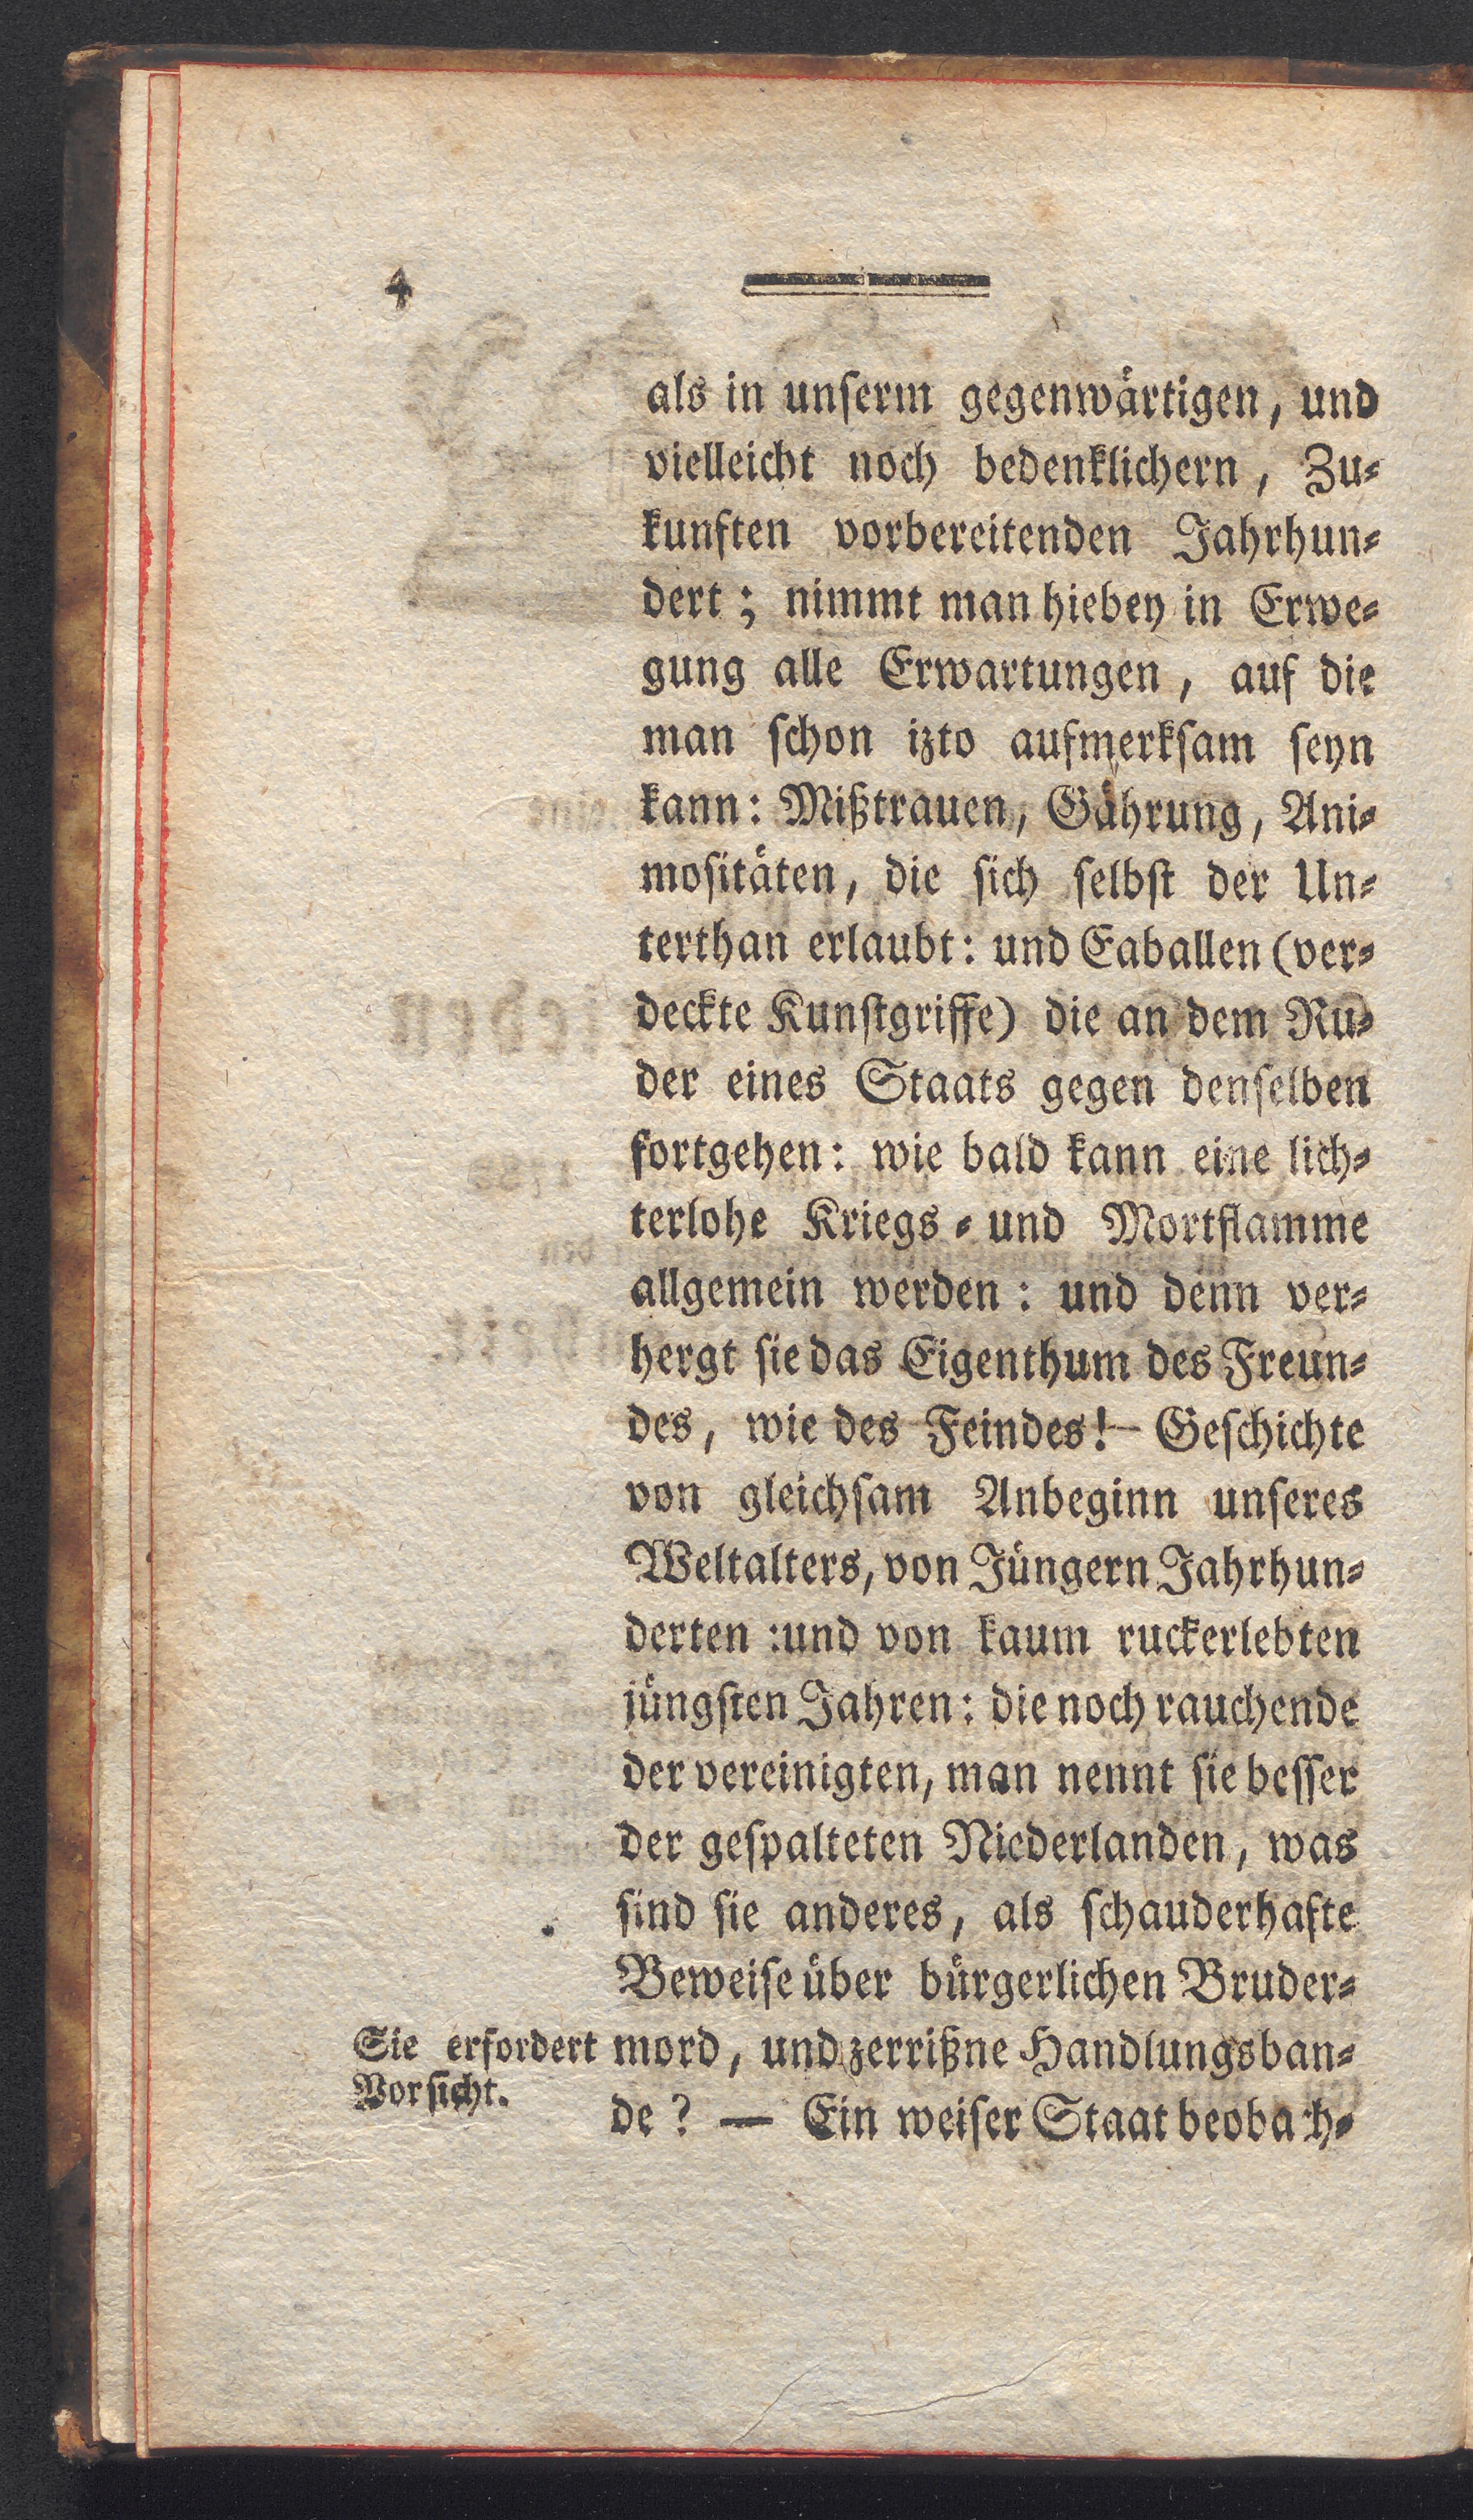 4
als in unſerm gegenwärtigen, und
vielleicht noch bedenklichern, Zu⸗
kunften vorbereitenden Jahrhun⸗
dert; nimmt man hiebey in Erwe⸗
gung alle Erwartungen, auf die
man ſchon izto aufmerkſam ſeyn
kann: Mißtrauen, Gährung, Ani⸗
moſitäten, die ſich ſelbſt der Un⸗
terthan erlaubt: und Caballen (ver⸗
deckte Kunſtgriffe) die an dem Ru⸗
der eines Staats gegen denſelben
fortgehen: wie bald kann eine lich⸗
terlohe Kriegs⸗ und Mortflamme
allgemein werden: und denn ver⸗
hergt ſie das Eigenthum des Freun⸗
des, wie des Feindes!— Geſchichte
von gleichſam Anbeginn unſeres
Weltalters, von Jüngern Jahrhun⸗
derten :und von kaum ruckerlebten
jüngſten Jahren: die noch rauchende
der vereinigten, man nennt ſie beſſer
der geſpalteten Niederlanden, was
ſind ſie anderes, als ſchauderhafte
Beweiſe über bürgerlichen Bruder⸗
Sie erfordert
Vorſicht.
mord, und zerrißne Handlungsban⸗
de? — Ein weiſer Staat beobach⸗